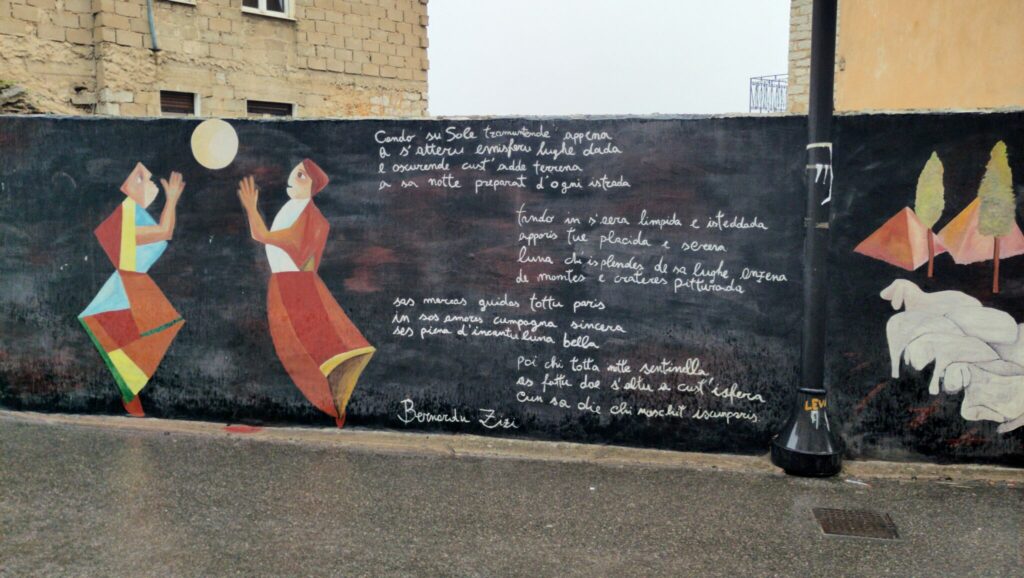 Cando su Sole tramuntende appena
a s'atteru emisferu lughe dada
e oscurende cust'adde terrena
a sa notte preparat d'ogni istrada
tando in s'aera limpida e isteddada
apparis tue placida e serena
luna chi isplendes de sa lughe anzena
de montes e crateres pitturada
sas mareas guidas tottu paris
in sos amores cumpagna sincera
ses piena d'incantu luna bella
Poi chi totta notte sentinella
as fattu dae s'altu a cust'isfera
Cun sa die chi naschit iscumparis.
Bernardu Zizi
LEVI